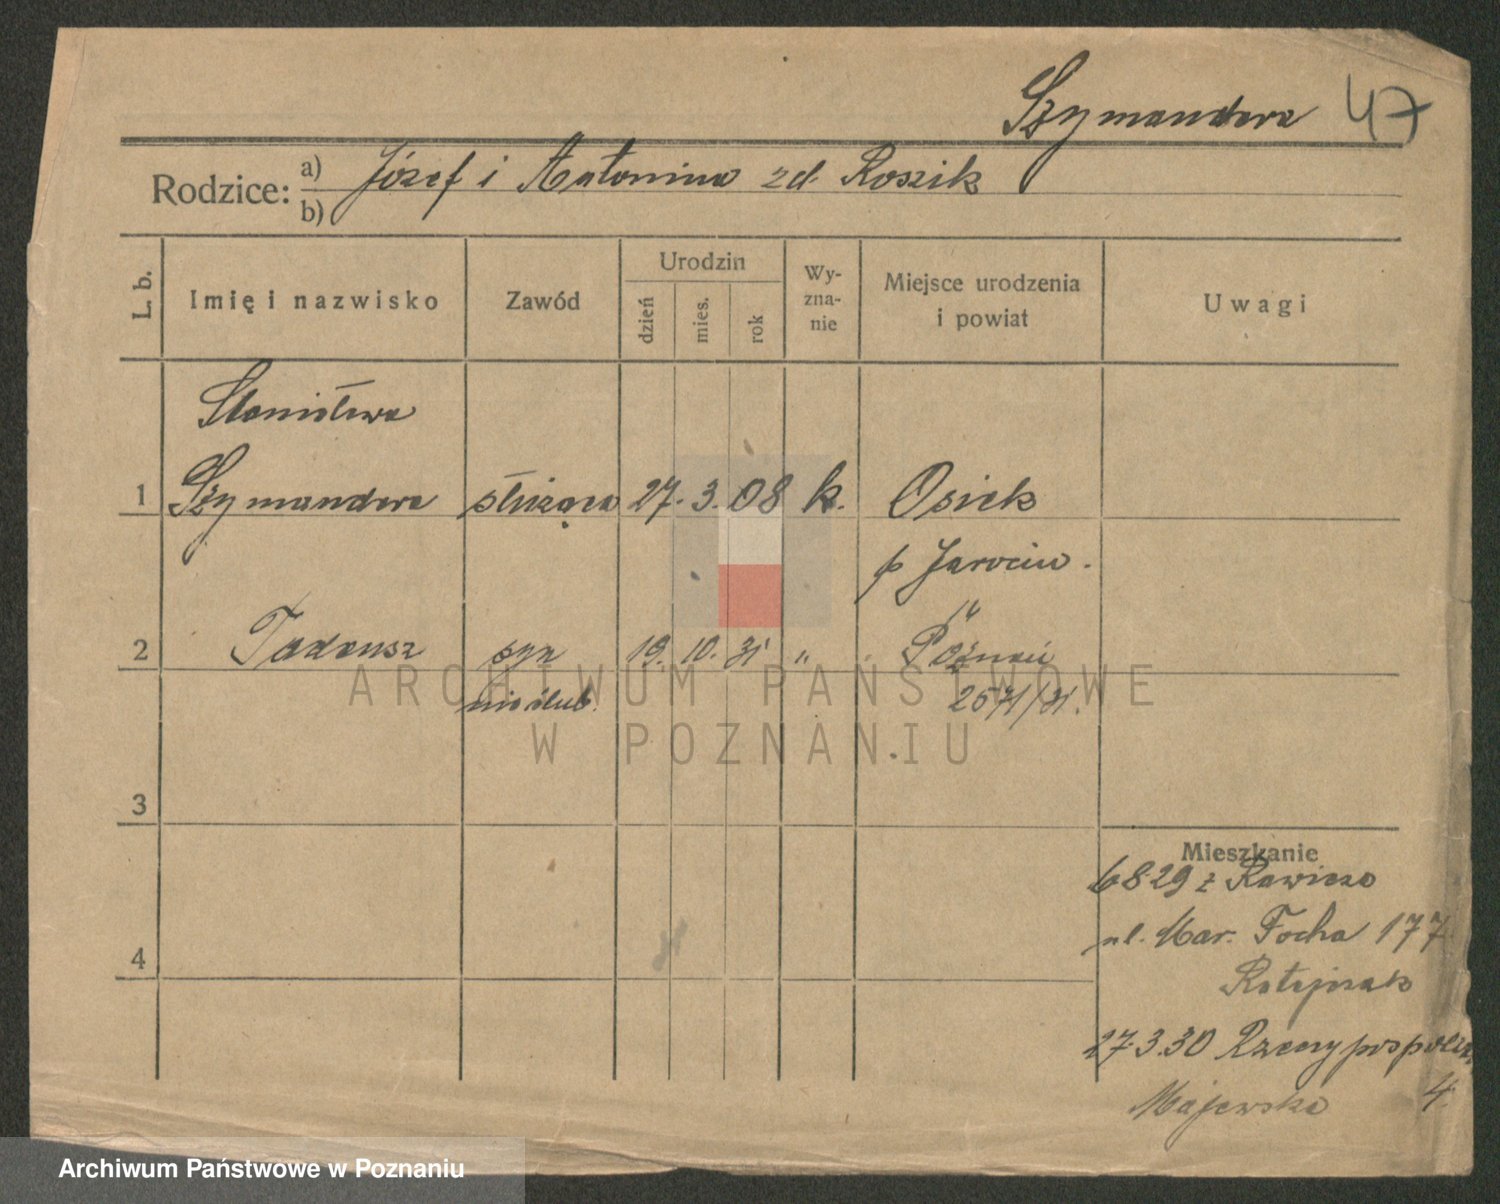 Szymandera 47
Rodzice: a) Józef i Antonina zd. Roszik
b)
L. b.
Imię i nazwisko
Zawód
Urodzin
dzień
mies.
rok
Wy-
zna-
nie
Miejsce urodzenia
i powiat
Uwagi
Stanisława
1 Szymandera służąca 27. 3. 08 k. Osiek
p Jarocin.
2 Tadeusz syn 19. 10. 31 " Poznań
nieślub. 2571/31.
3
4
Mieszkanie
6829 z Rawicza
ul. Mar. Focha 177
Ratajczak
27.3.30 Rzeczypospolitej
Majewska 4
ARCHIWUM PAŃSTWOWE
W POZNANIU
Archiwum Państwowe w Poznaniu